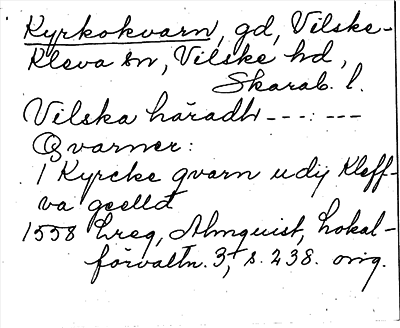 Kyrkokvarn, gd, Vilske-
Kleva sn, Vilske hd,
Skarab. l.
Vilska häradh ---:---
Qvarner:
1 Kyrcke qvarn udij Kleff-
va geelld
1558 Lreg, Almquist, Lokal-
förvaltn. 3, s. 238. orig.